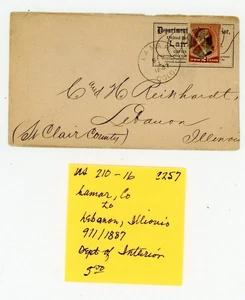 Department
Lan
C and H Reinhardt,
Lebanon
(St Clair County) Illinois
US 210-16 2257
Lamar, Co
to
Lebanon, Illionis
9/1/1887
Dept of Interior
5.00